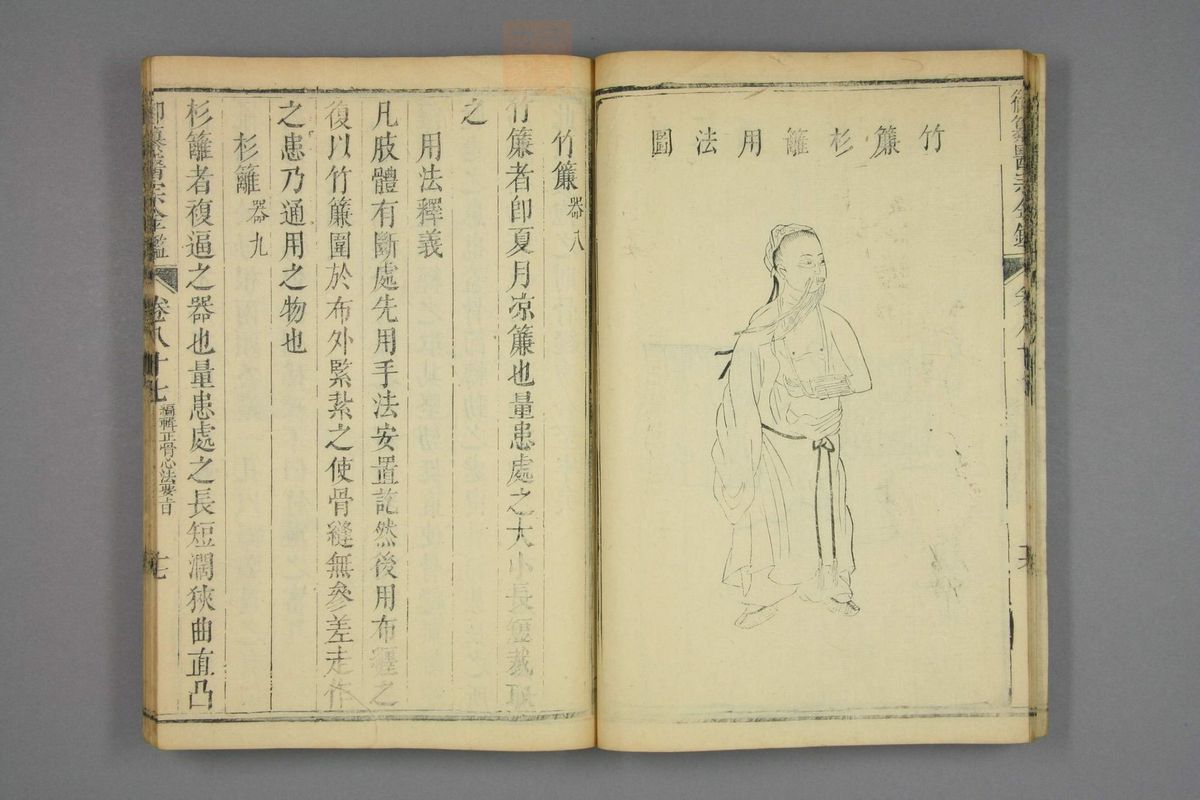 竹簾杉籬用法圖
竹簾器八
竹簾者即夏月凉簾也量患處之大小長短裁取
之
用法釋義
凡肢體有斷處先用手法安置訖然後用布纒之
復以竹簾圍於布外緊紥之使骨縫無參差走作
之患乃通用之物也
杉籬器九
杉籬者複逼之器也量患處之長短濶狹曲直凸
御纂醫宗金鑑 卷八十七 編輯正骨心法要旨